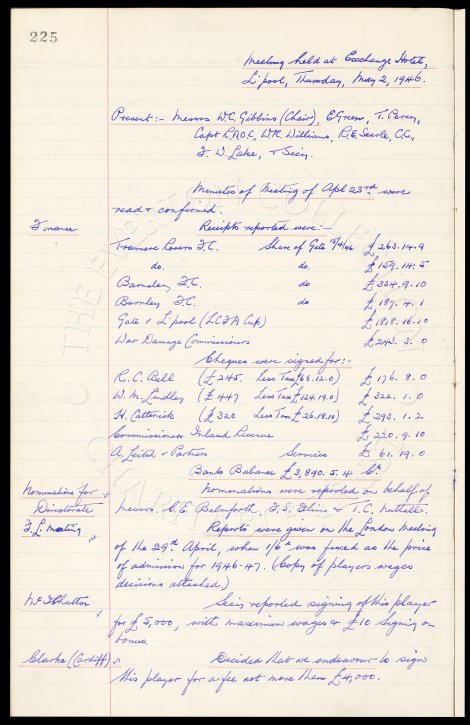 225
Meeting held at Exchange Hotel,
L'pool, Thursday, May 2, 1946.
Present:- Messrs W.C. Gibbins (Chair), E Green, T. Percy,
Capt R.A.O.C, W.R. Williams, R.E. Searle, C.C,
F. W. Lake, & Secy.
Minutes of Meeting of Apl 23rd were
read & confirmed.
Finance Receipts reported were:-
Tranmere Rovers F.C. Share of Gate £263.14.9
do. do. £159.14.5
Barnsley F.C. do £334.9.10
Burnley F.C. do £187.4.1
Gate v L'pool (LCFA Cup) £1818.16.10
War Damage Commissioners £243.3.0
Cheques were signed for:-
R.C. Bell (£245. Less Tax £68.12.0) £176.8.0
W. M. Lindley (£447 Less Tax £124.19.0) £322.1.0
H. Catterick (£320 Less Tax £26.18.10) £293.1.2
Commissioners Inland Revenue £220.9.10
A. Leitch & Partners Services £61.19.0
Bank Balance £3,890.5.4 Cr.
Nominations for Nominations were reported on behalf of
Directorate Messrs. C.E. Balmforth, & T.C. Nuttall.
F.L. Meeting Reports were given on the London Meeting
of the 29th April, when 1/6d was fixed as the price
of admission for 1946-47. (Copy of players wages
decisions attached.)
Secy reported signing of this player
for £5,000, with maximum wages & £10 signing on
bonus.
Clarke (Cardiff) Decided that we endeavour to sign
this player for a fee not more than £4,000.